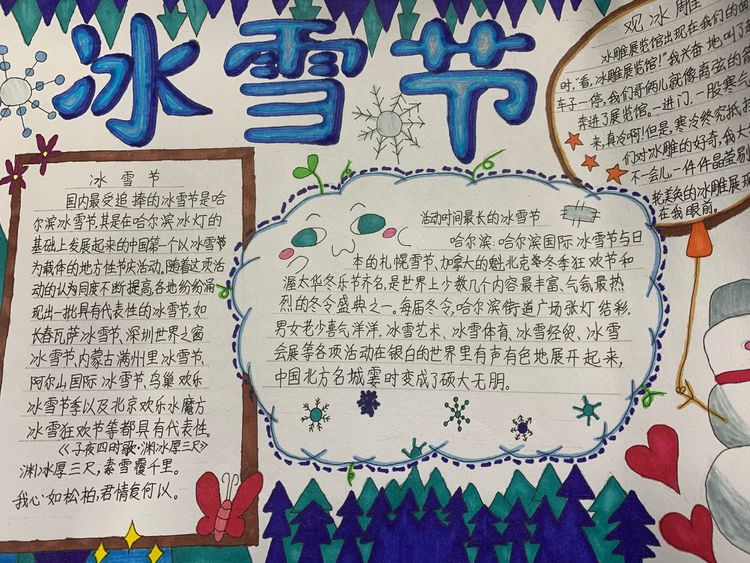 冰雪节
冰雪节
国内最受追捧的冰雪节是哈
尔滨冰雪节,其是在哈尔滨冰灯的
基础上发展起来的中国第一个以冰雪节
为载体的地方性节庆活动。随着这项活
动的认为同度不断提高,各地纷纷涌
现出一批具有代表性的冰雪节,如
长春瓦萨冰雪节、深圳世界之窗
冰雪节、内蒙古满州里冰雪节、
阿尔山国际冰雪节、鸟巢欢乐
冰雪节季以及北京欢乐水魔方
冰雪狂欢节等都具有代表性。
《子夜四时歌·渊冰厚三尺》
渊冰厚三尺,素雪覆千里。
我心如松柏,君情复何以。
活动时间最长的冰雪节
哈尔滨:哈尔滨国际冰雪节与日
本的札幌雪节,加拿大的魁北克冬季狂欢节和
渥太华冬乐节齐名,是世界上少数几个内容最丰富,气氛最热
烈的冬令盛典之一。每届冬令,哈尔滨街道广场张灯结彩,
男女老少喜气洋洋,冰雪艺术、冰雪体育、冰雪经贸、冰雪
会展等各项活动在银白的世界里有声有色地展开起来,
中国北方名城霎时变成了硕大无朋。
观冰雕
冰雕展览馆出现在我们的面
时,"看,冰雕展览馆!"我兴奋地叫了
车子一停,我们哥俩儿就像离弦的
奔进了展览馆。一进门,一股寒
来,真冷啊!但是,寒冷终究抵
们对冰雕的好奇,我
不一会儿,一件件晶莹剔
老美奂的冰雕展现
在我眼前。